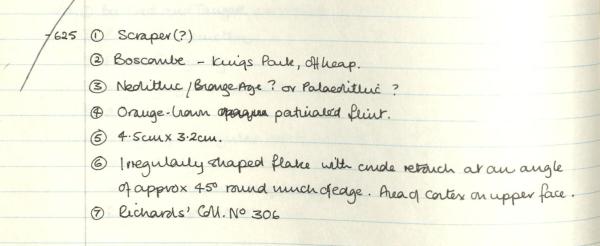 625 ① Scraper(?)
② Boscombe - Kings Park, off heap.
③ Neolithic/Bronze Age? or Palaeolithic?
④ Orange-brown patinated flint.
⑤ 4.5cm x 3.2cm.
⑥ Irregularly shaped flake with crude retouch at an angle
of approx 45° round much of edge. Area of cortex on upper face.
⑦ Richards' Coll. No 306